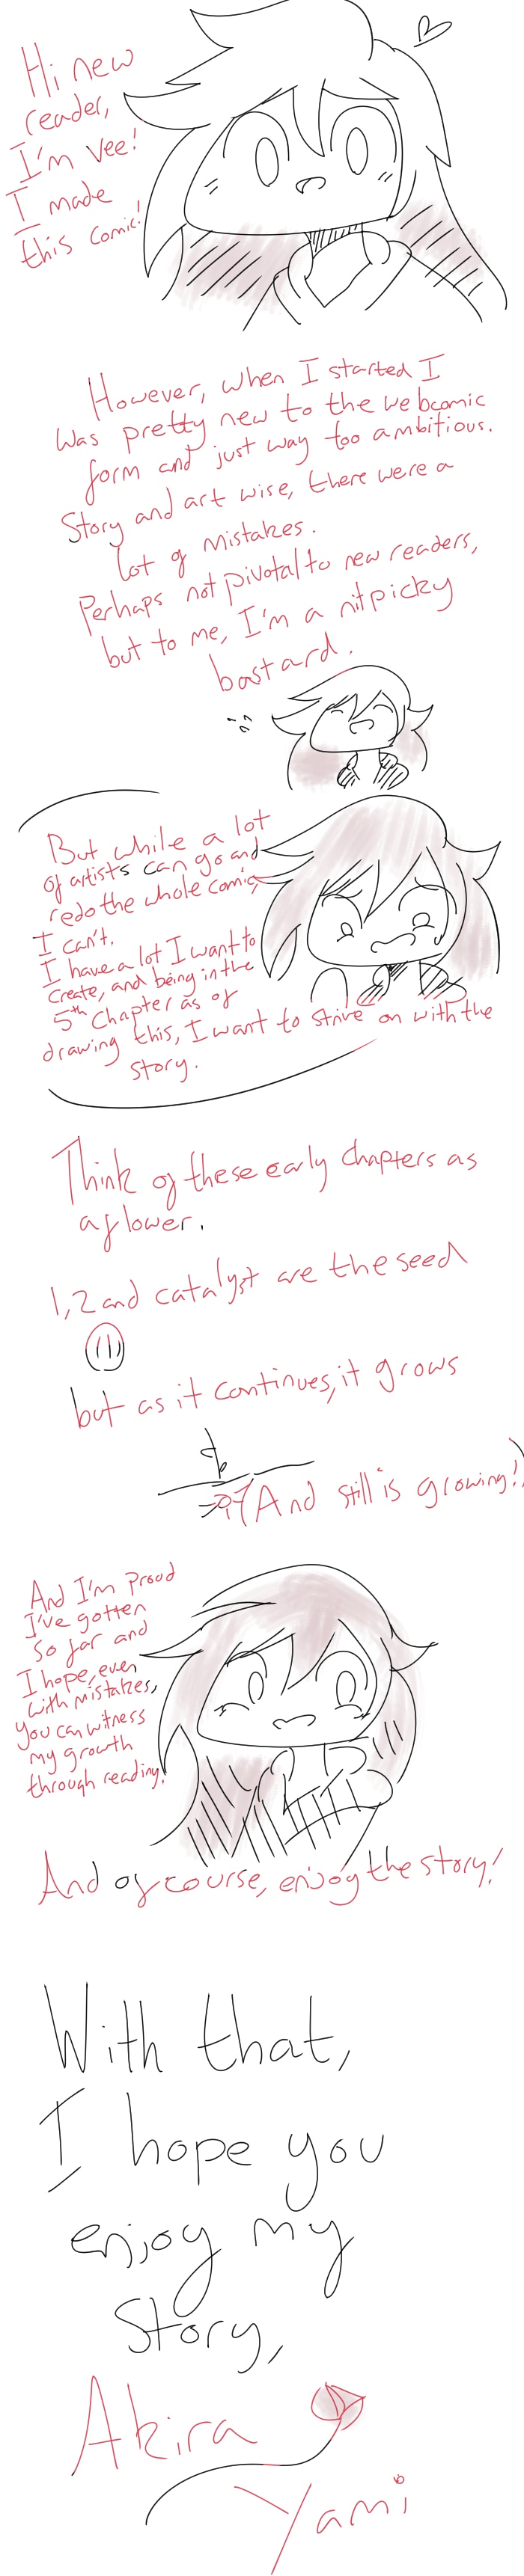 Hi new
reader,
I'm Vee!
I made
this comic!
However, when I started I
was pretty new to the webcomic
form and just way too ambitious.
Story and art wise, there were a
lot of mistakes.
Perhaps not pivotal to new readers,
but to me, I'm a nitpicky
bastard.
But while a lot
of artists can go and
redo the whole comic,
I can't.
I have a lot I want to
create, and being in the
5th Chapter as of
drawing this, I want to strive on with the
story.
Think of these early chapters as
a flower.
1, 2 and catalyst are the seed
but as it continues, it grows
(And still is growing!)
And I'm proud
I've gotten
so far and
I hope, even
with mistakes,
you can witness
my growth
through reading!
And of course, enjoy the story!
With that,
I hope you
enjoy my
story,
Akira
Yami